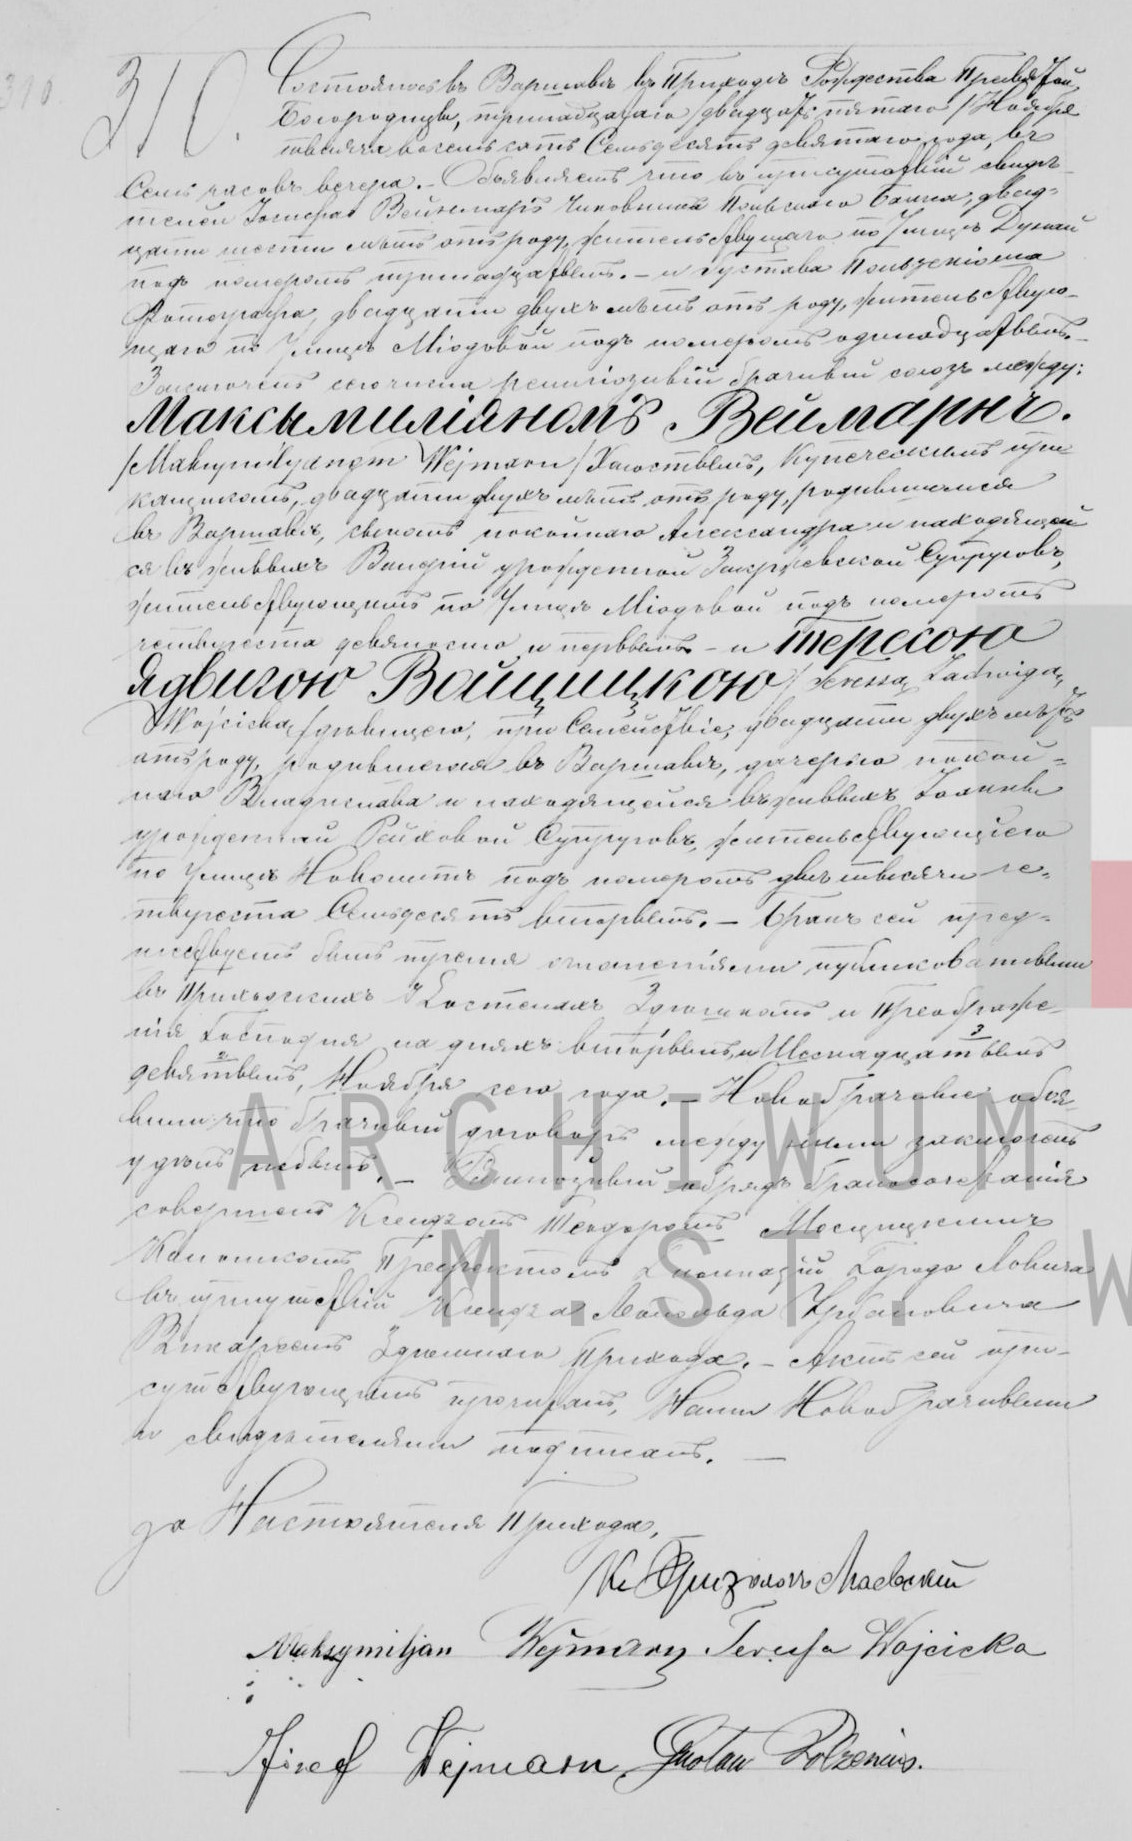 310
310.
Состоялось въ Варшавѣ въ Приходѣ Рождества Пресвятой
Богородицы, тринадцатаго /двадцать пятаго/ Ноября
тысяча восемь сотъ Семьдесятъ девятаго года, въ
Семь часовъ вечера. – Объявляемъ что въ присутствіи свидѣ-
телей Іосифа Веймарнъ Чиновника Польскаго Банка, двад-
цати шести лѣтъ отъ роду, жительствующаго по Улицѣ Дунай
подъ номеромъ тринадцатымъ. – и Густава Польценіюша
Фотографа, двадцати двухъ лѣтъ отъ роду, жительствую-
щаго по Улицѣ Міодовой подъ номеромъ одинадцатымъ. –
Заключенъ сего числа религіозный брачный союзъ между:
Максымиліяномъ Веймарнъ.
/Maksymilyanem Wejmarn/ Холостымъ, Купеческимъ при-
кащикомъ, двадцати двухъ лѣтъ отъ роду, родившимся
въ Варшавѣ, сыномъ покойнаго Александра и находящей
ся въ живыхъ урожденной Закржевской Супруговъ,
жительствующимъ по Улицѣ Міодовой подъ номеромъ
четыреста девяносто и первымъ – и Тересою
Ядвигою Войцицкою /Teressą Jadwigą
Wojcicką/ дѣвицею, при Семействѣ, двадцати двухъ лѣтъ
отъ роду, родившеюся въ Варшавѣ, дочерью покой-
наго Владислава и находящейся въ живыхъ Іоанны
урожденной Супруговъ, жительствующею
по Улицѣ Новолипѣ подъ номеромъ двѣ тысячи че-
тыреста Семьдесятъ вторымъ. – Бракъ сей пред-
шествуемъ былъ тремя оглашеніями публикованными
въ Приходскихъ Костелахъ Здѣшнемъ и Преображе-
нія Господня на дняхъ вторымъ, и Шестнадцатымъ
девятымъ, Ноября сего года. – Новобрачные объя-
вили что брачный договоръ между ними заключенъ
не былъ. – Религіозный обрядъ бракосочетанія
совершенъ Ксендзомъ Теодоромъ
Каноникомъ Префектомъ Гимназіи Города Ловича
въ присутствіи Ксендза Леопольда Урбановича
Викарнемъ Здѣшняго Прихода. – Актъ сей при-
сутствующимъ прочитанъ, Нами Новобрачными
и свидѣтелями подписанъ. –
за Настоятеля Прихода,
Кс. Хризологъ Маевскій
Maksymiljan Wejmarn Teressa Wojcicka
Józef Wejmarn Gustaw Polzenius.
ARCHIWUM
M.ST. W